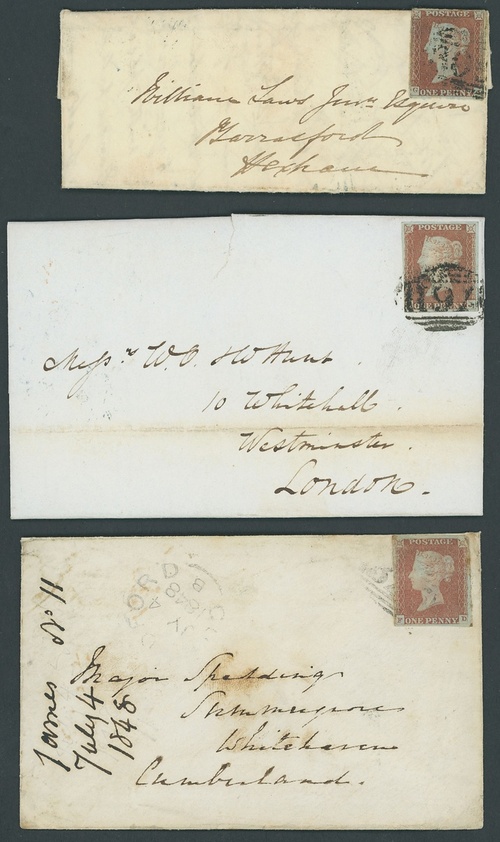 POSTAGE
ONE PENNY
William Laws Junr Esquire
Barrasford
Hexham
POSTAGE
ONE PENNY
Messrs W. O. & W Hunt
10 Whitehall.
Westminster.
London.
POSTAGE
ONE PENNY
F D
James No 11
July 4
1848
Major Spedding
Summergrove
Whitehaven
Cumberland.